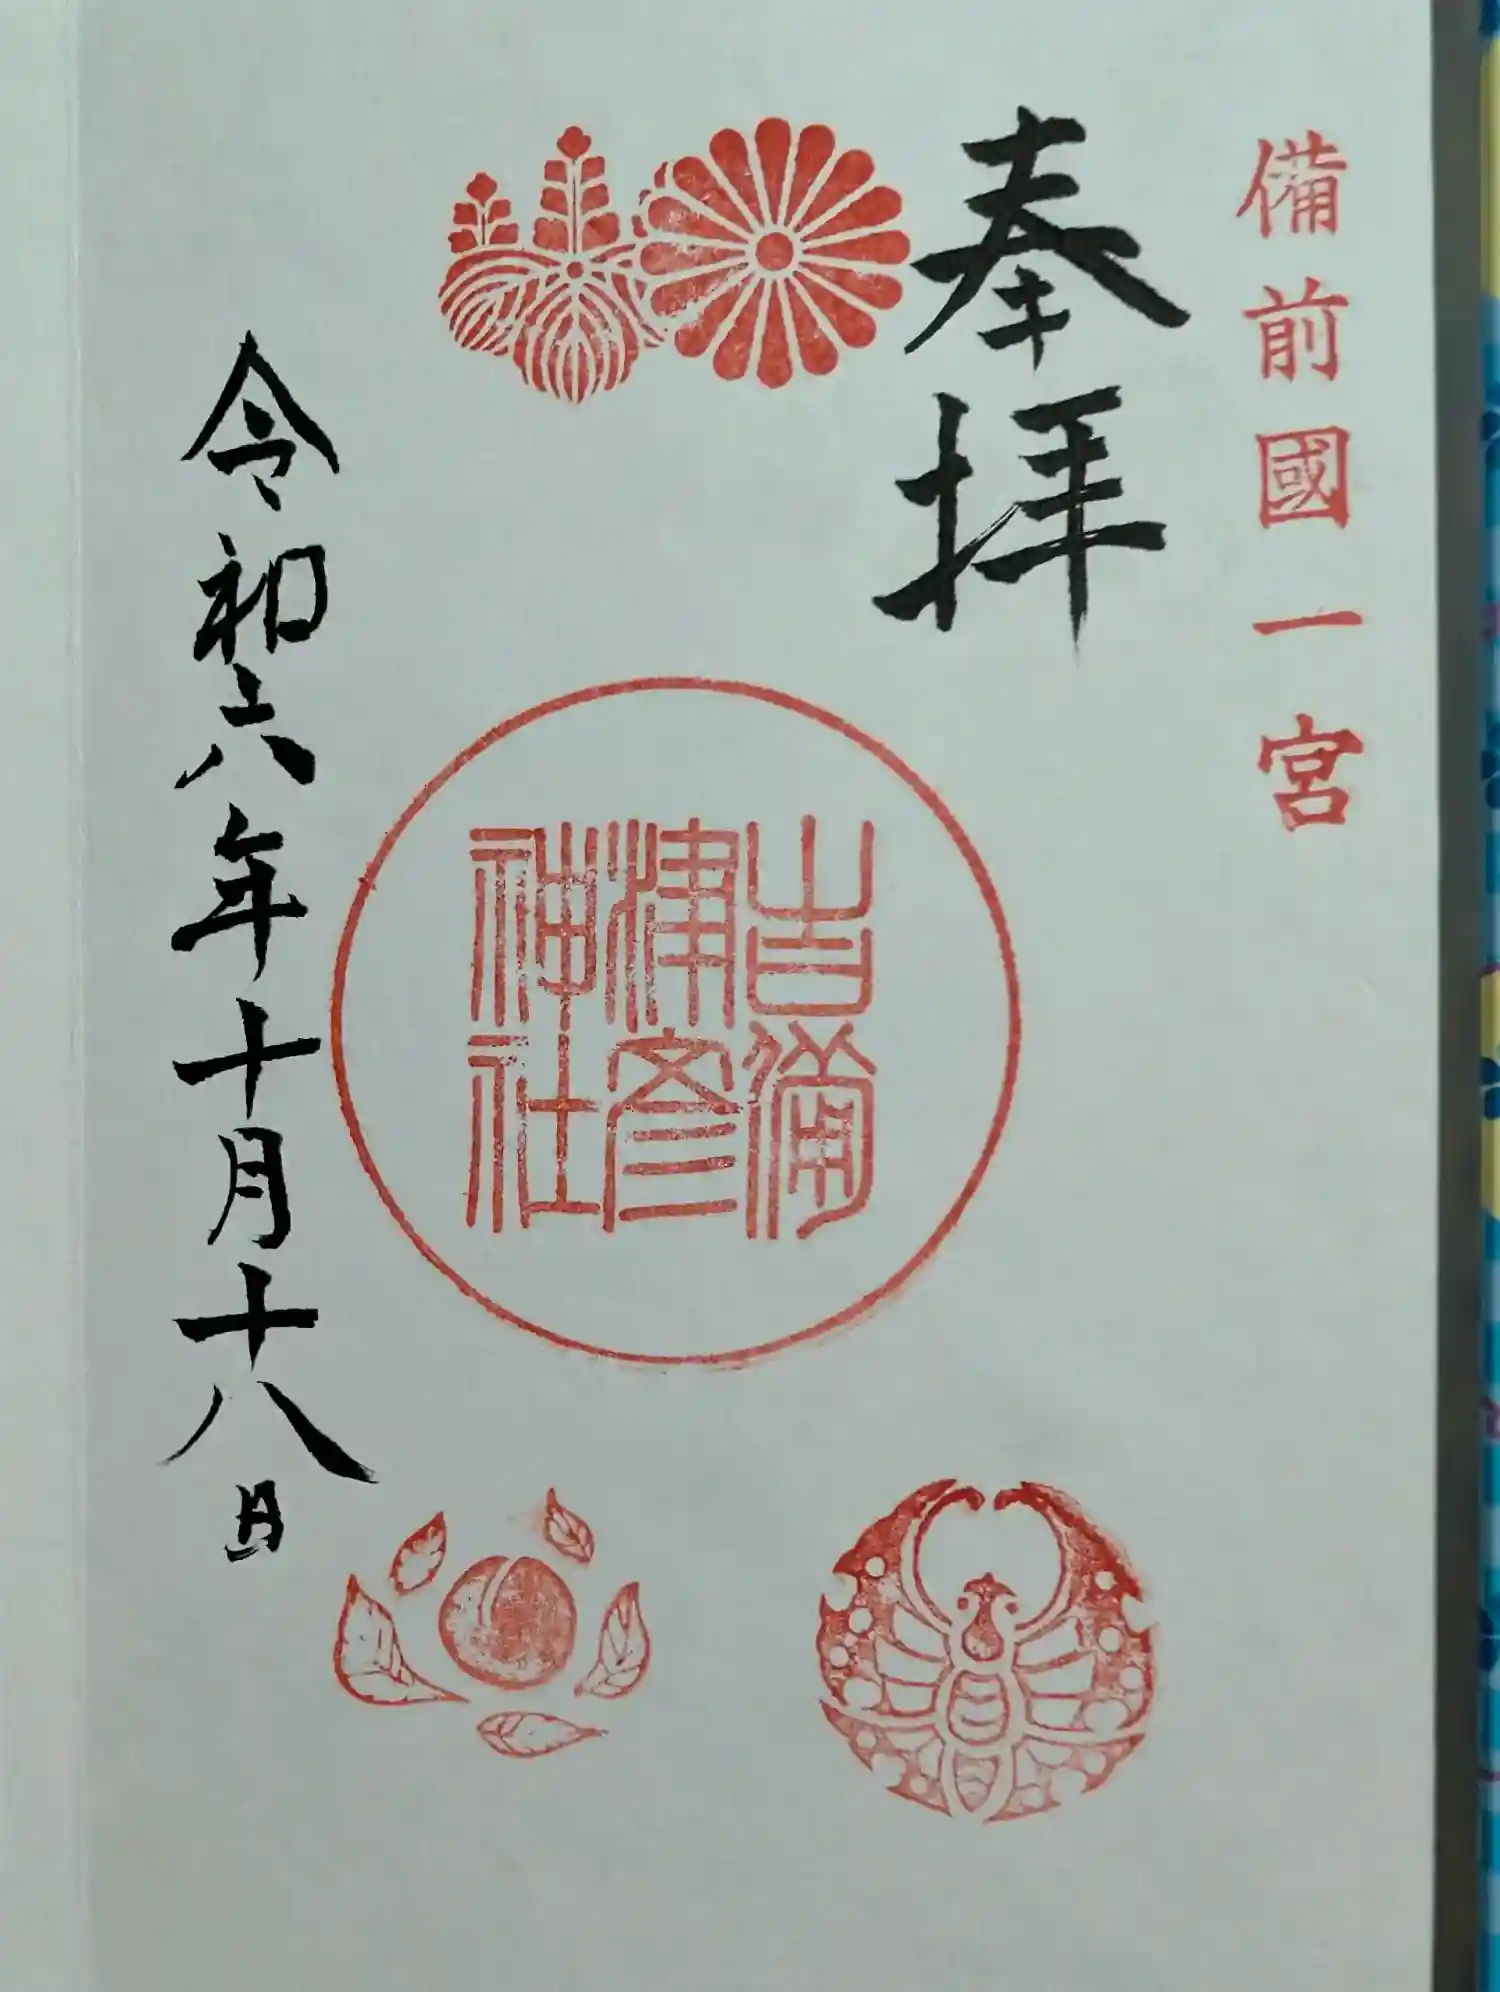 備前國一宮
奉拝
吉備
津彦
神社
令和六年十月十八日